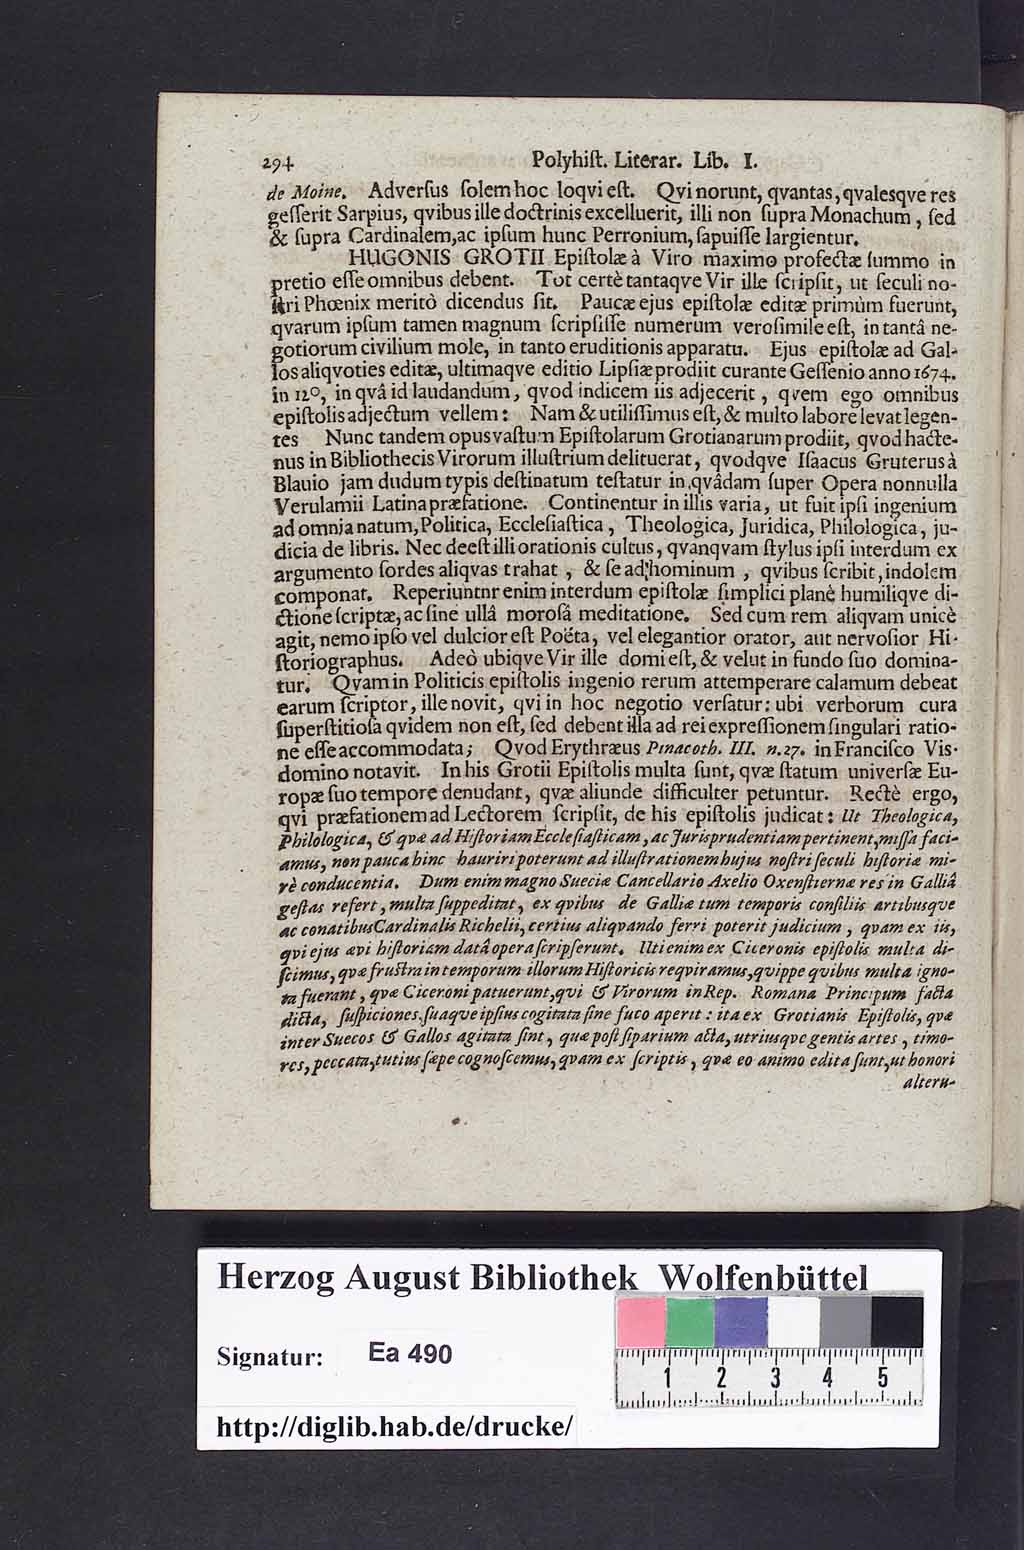 294 Polyhiſt. Literar. Lib. I.
de Moine. Adverſus ſolem hoc loqvi eſt. Qvi norunt, qvantas, qvalesqve res
geſſerit Sarpius, qvibus ille doctrinis excelluerit, illi non ſupra Monachum, ſed
& ſupra Cardinalem, ac ipſum hunc Perronium, ſapuiſſe largientur.
HUGONIS GROTII Epiſtolæ à Viro maximo profectæ ſummo in
pretio eſſe omnibus debent. Tot certè tantaqve Vir ille ſcripſit, ut ſeculi no-
ſtri Phœnix meritò dicendus ſit. Paucæ ejus epiſtolæ editæ primùm fuerunt,
qvarum ipſum tamen magnum ſcripſiſſe numerum veroſimile eſt, in tantâ ne-
gotiorum civilium mole, in tanto eruditionis apparatu. Ejus epiſtolæ ad Gal-
los aliqvoties editæ, ultimaqve editio Lipſiæ prodiit curante Geſſenio anno 1674.
in 12°, in qvâ id laudandum, qvod indicem iis adjecerit, qvem ego omnibus
epiſtolis adjectum vellem: Nam & utiliſſimus eſt, & multo labore levat legen-
tes Nunc tandem opus vaſtum Epiſtolarum Grotianarum prodiit, qvod hacte-
nus in Bibliothecis Virorum illuſtrium delituerat, qvodqve Iſaacus Gruterus à
Blauio jam dudum typis deſtinatum teſtatur in qvâdam ſuper Opera nonnulla
Verulamii Latina præfatione. Continentur in illis varia, ut fuit ipſi ingenium
ad omnia natum, Politica, Eccleſiaſtica, Theologica, Juridica, Philologica, ju-
dicia de libris. Nec deeſt illi orationis cultus, qvanqvam ſtylus ipſi interdum ex
argumento ſordes aliqvas trahat, & ſe ad hominum, qvibus ſcribit, indolem
componat. Reperiuntnr enim interdum epiſtolæ ſimplici planè humiliqve di-
ctione ſcriptæ, ac ſine ullâ moroſâ meditatione. Sed cum rem aliqvam unicè
agit, nemo ipſo vel dulcior eſt Poëta, vel elegantior orator, aut nervoſior Hi-
ſtoriographus. Adeò ubiqve Vir ille domi eſt, & velut in fundo ſuo domina-
tur. Qvam in Politicis epiſtolis ingenio rerum attemperare calamum debeat
earum ſcriptor, ille novit, qvi in hoc negotio verſatur: ubi verborum cura
ſuperſtitioſa qvidem non eſt, ſed debent illa ad rei expreſſionem ſingulari ratio-
ne eſſe accommodata; Qvod Erythræus Pinacoth. III. n. 27. in Franciſco Vis-
domino notavit. In his Grotii Epiſtolis multa ſunt, qvæ ſtatum univerſæ Eu-
ropæ ſuo tempore denudant, qvæ aliunde difficulter petuntur. Rectè ergo,
qvi præfationem ad Lectorem ſcripſit, de his epiſtolis judicat: Ut Theologica,
Philologica, & qvæ ad Hiſtoriam Eccleſiaſticam, ac Jurisprudentiam pertinent, miſſa faci-
amus, non pauca hinc hauriri poterunt ad illuſtrationem hujus noſtri ſeculi hiſtoriæ mi-
rè conducentia. Dum enim magno Sueciæ Cancellario Axelio Oxenſtiernæ res in Galliâ
geſtas refert, multa ſuppeditat, ex qvibus de Galliæ tum temporis conſiliis artibusqve
ac conatibus Cardinalis Richelii, certius aliqvando ferri poterit judicium, qvam ex iis,
qvi ejus ævi hiſtoriam datâ opera ſcripſerunt. Uti enim ex Ciceronis epiſtolis multa di-
ſcimus, qvæ fruſtra in temporum illorum Hiſtoricis reqviramus, qvippe qvibus multa igno-
ta fuerant, qvæ Ciceroni patuerunt, qvi & Virorum in Rep. Romana Principum facta
dicta, ſuſpiciones, ſuaqve ipſius cogitata ſine fuco aperit: ita ex Grotianis Epiſtolis, qvæ
inter Suecos & Gallos agitata ſint, quæ poſt ſiparium acta, utriusqve gentis artes, timo-
res, peccata, tutius ſæpe cognoſcemus, qvam ex ſcriptis, qvæ eo animo edita ſunt, ut honori
alteru-
Herzog August Bibliothek Wolfenbüttel
Signatur: Ea 490
1 2 3 4 5
http://diglib.hab.de/drucke/